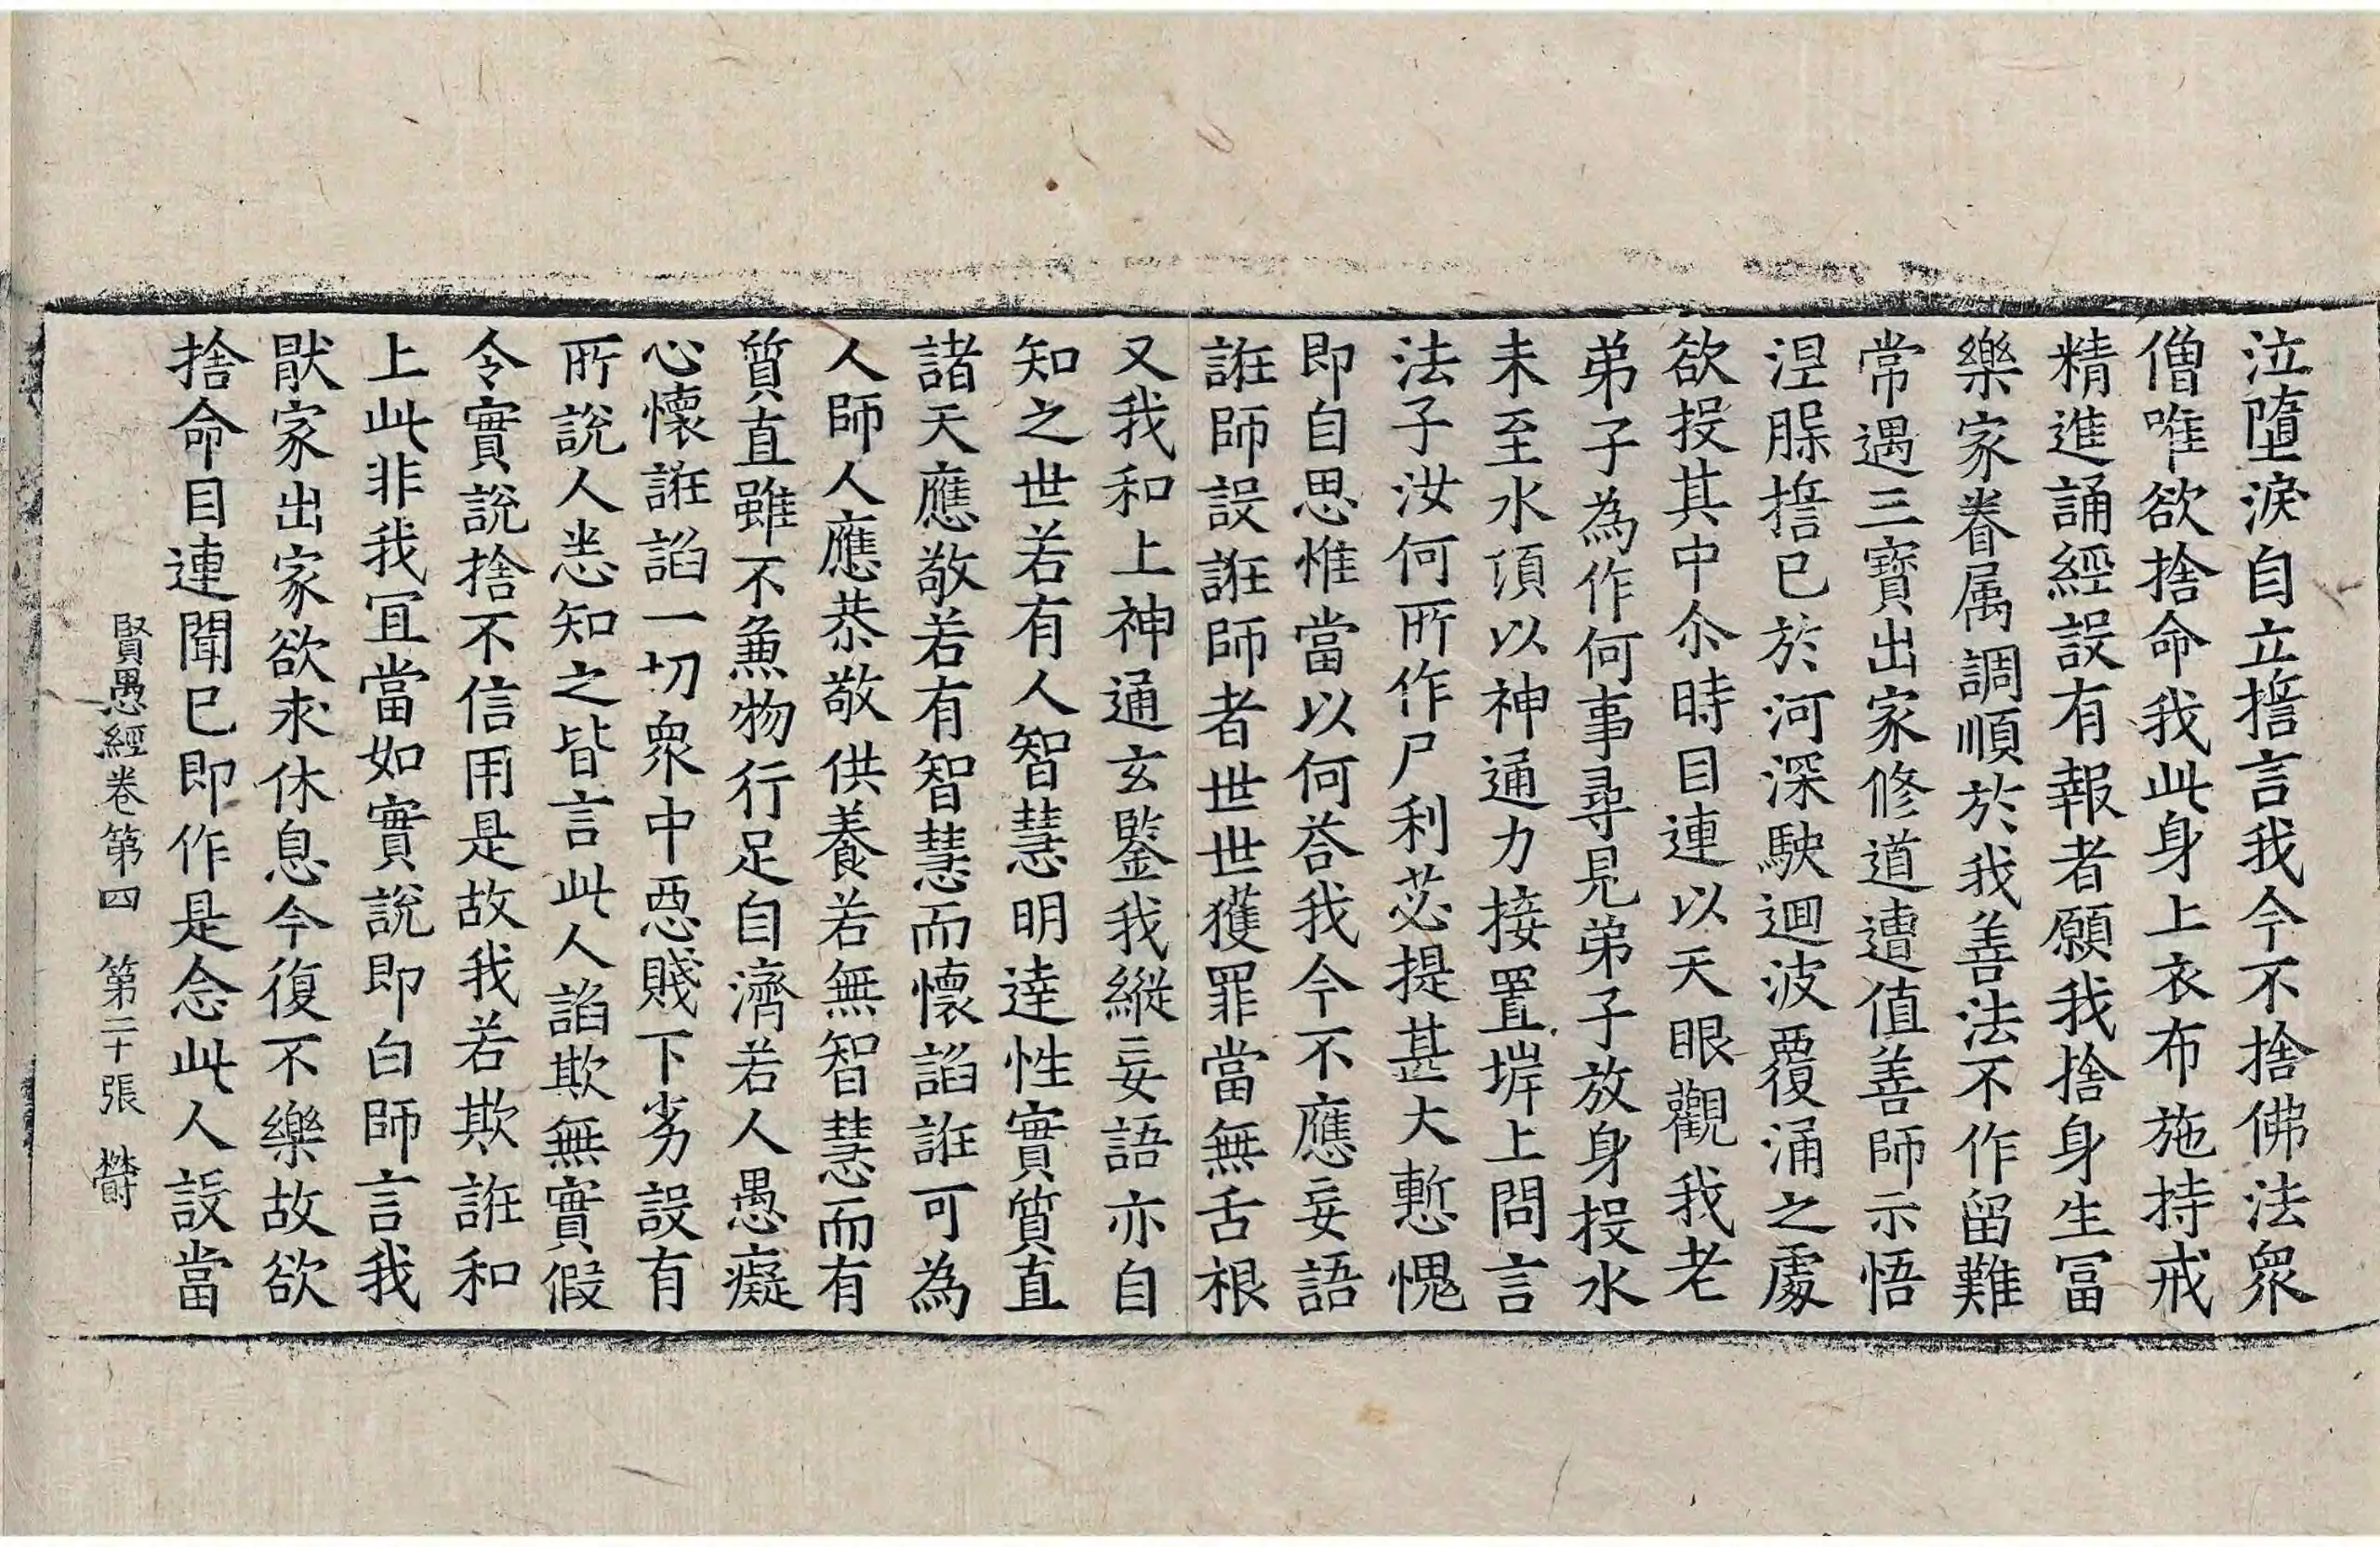 泣墮淚自立擔言我今不捨佛法衆
僧唯欲捨命我此身上衣布施持戒
精進誦經設有報者願我捨身生冨
樂家眷属調順於我善法不作留難
常遇三寶出家修道遭值善師示悟
涅脲擔已於河深駛迴波覆涌之處
欲投其中尒時目連以天眼觀我老
弟子為作何事尋見弟子放身投水
未至水頂以神通力接置埠上問言
法子汝何所作尸利苾提甚大慙愧
即自思惟當以何荅我今不應妄語
誑師設誑師者世世獲罪當無舌根
又我和上神通玄鑒我縱妄語亦自
知之世若有人智慧明達性實質直
諸天應敬若有智慧而懷諂誑可為
人師人應恭敬供養若無智慧而有
質直雖不兼物行足自濟若人愚癡
心懷誑諂一切衆中惡賤下劣設有
所說人悉知之皆言此人諂欺無實假
令實說捨不信用是故我若欺誑和
上此非我冝當如實說即白師言我
猒家出家欲求休息今復不樂故欲
捨命目連聞已即作是念此人設當
賢愚經卷第四 第二十張 欝